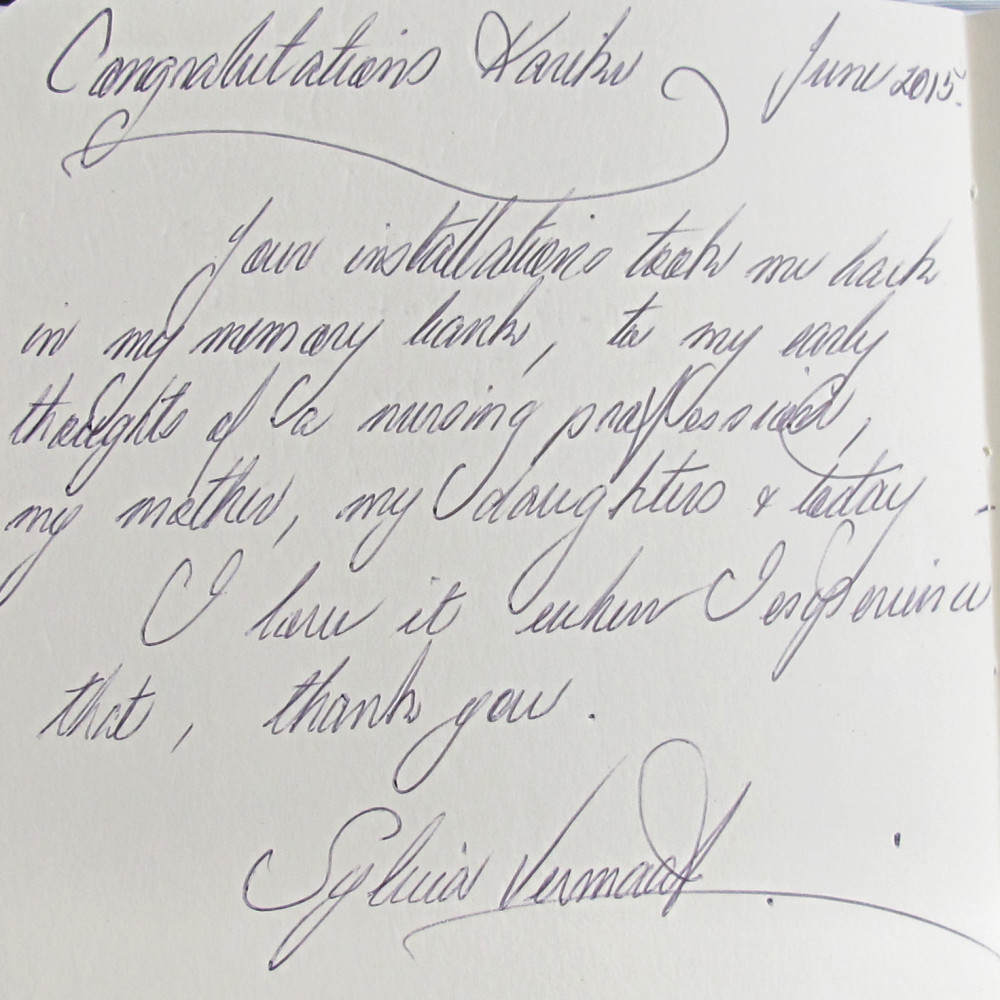 Congratulations Karike June 2015.
Your installations took me back
in my memory bank, to my early
thoughts of a nursing profession,
my mother, my daughters & today -
I love it when I experience
that, thank you.
Sylvia Vermaak